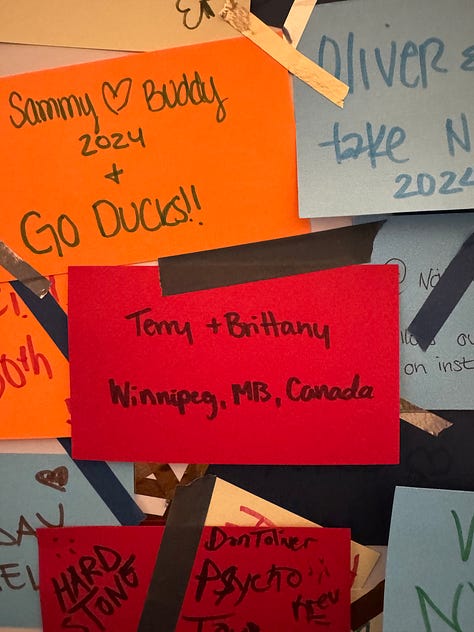 Sammy ♡ Buddy
2024
+
Go Ducks!!
Oliver &
take N
2024
Terry + Brittany
Winnipeg, MB, Canada
on inst
HARD
STONE
Don Toliver
Psycho